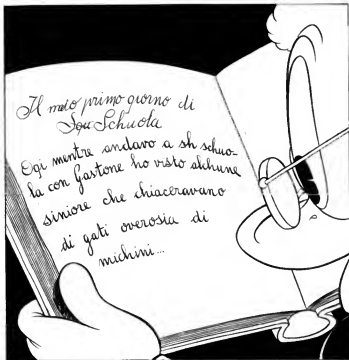 Il meio primo giorno di
Squ Schuola
Ogi mentre andavo a sh schuo-
la con Gastone ho visto alchune
siniore che chiaceravano
di gati overosia di
michini...